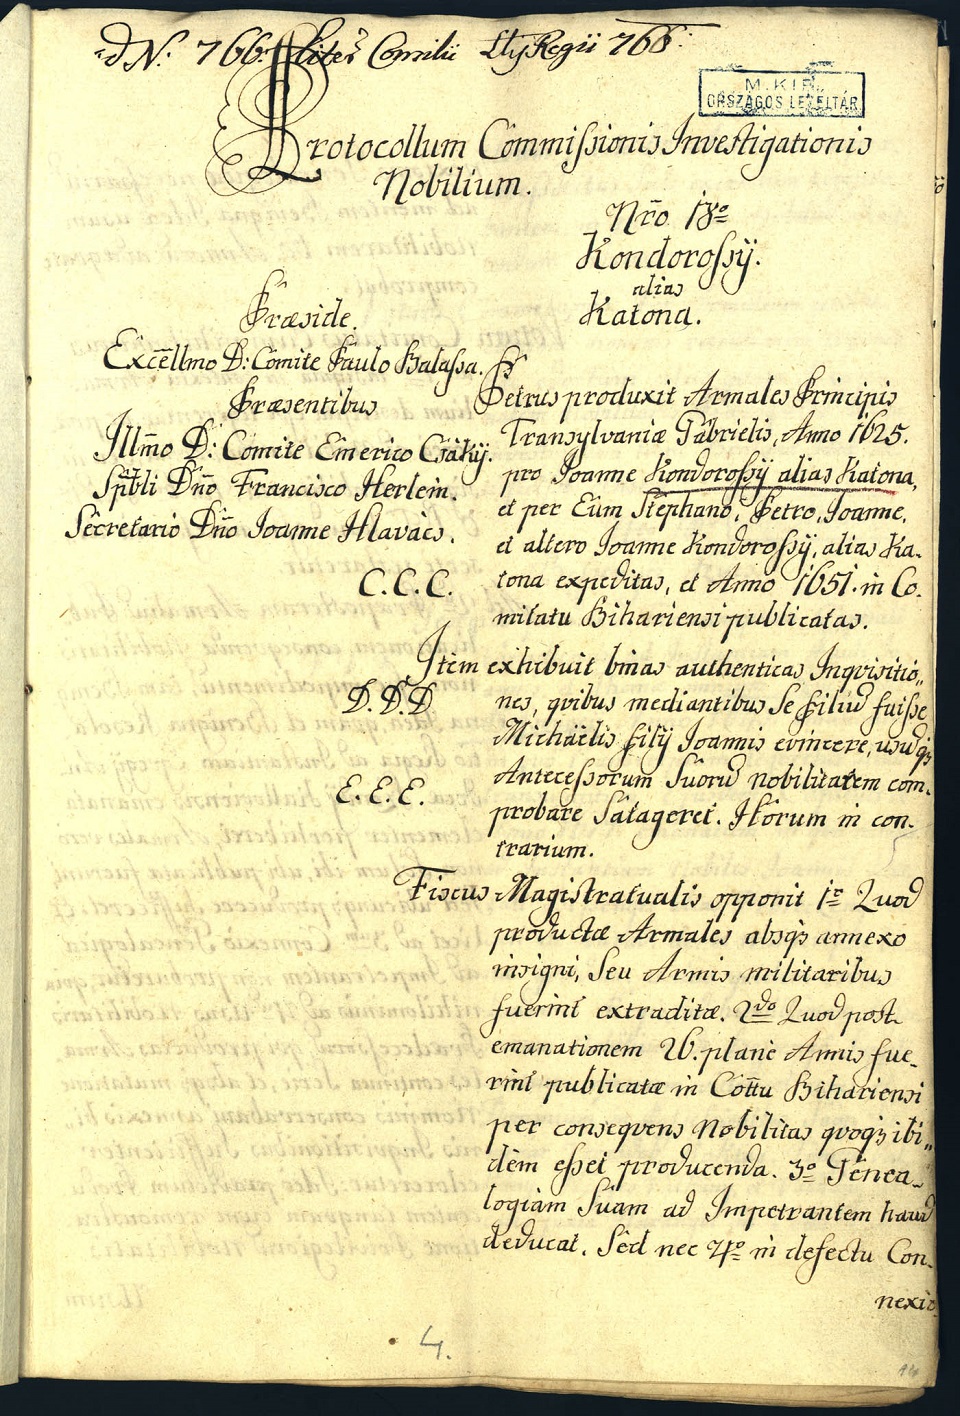 ad N: 766. Lites Consilii Ltt Regii 766.
M. KIR.
ORSZÁGOS LEVÉLTÁR
Protocollum Commissionis Investigationis
Nobilium.
Nr̄o 18o
Kondorossÿ.
alias
Katona.
Præside.
Excēllmo D: Comite Paulo Balassa.
Præsentibus
Illm̄o D: Comite Emerico Csákÿ.
Sp̄tbli Dn̄o Francisco Herlein.
Secretario Dn̄o Joanne Hlavacs.
Petrus produxit Armales Principis
Transylvaniæ Gabrielis, Anno 1625.
pro Joanne Kondorossÿ alias Katona,
et per Eūm Stephano, Petro, Joanne,
et altero Joanne Kondorossÿ, alias Ka-
C.C.C.
tona expeditas, et Anno 1651. in Co-
mitatu Bihariensi publicatas.
Item exhibuit binas authenticas Inqvisitio„
D.D.D
nes, qvibus mediantibus Se filiū fuisse
Michaëlis filÿ Joannis evincere, usūq3
E.E.E.
Antecessorum Suorū nobilitatem com-
probare Satageret. Horum in con-
trarium.
Fiscus Magistratualis opponit 1o Quod
productæ Armales absq3 annexo
insigni, Seu Armis militaribus
fuerint extraditæ. 2do Quod post
emanationem 26. plane Annis fue-
rint publicatæ in Cot̄tu Bihariensi
per conseqvens Nobilitas qvoq3 ibi„
dem esset producenda. 3o Genea-
logiam Suam ad Impetrantem haud
deducat. Sed nec 4to in defectu Con-
nexio
4.